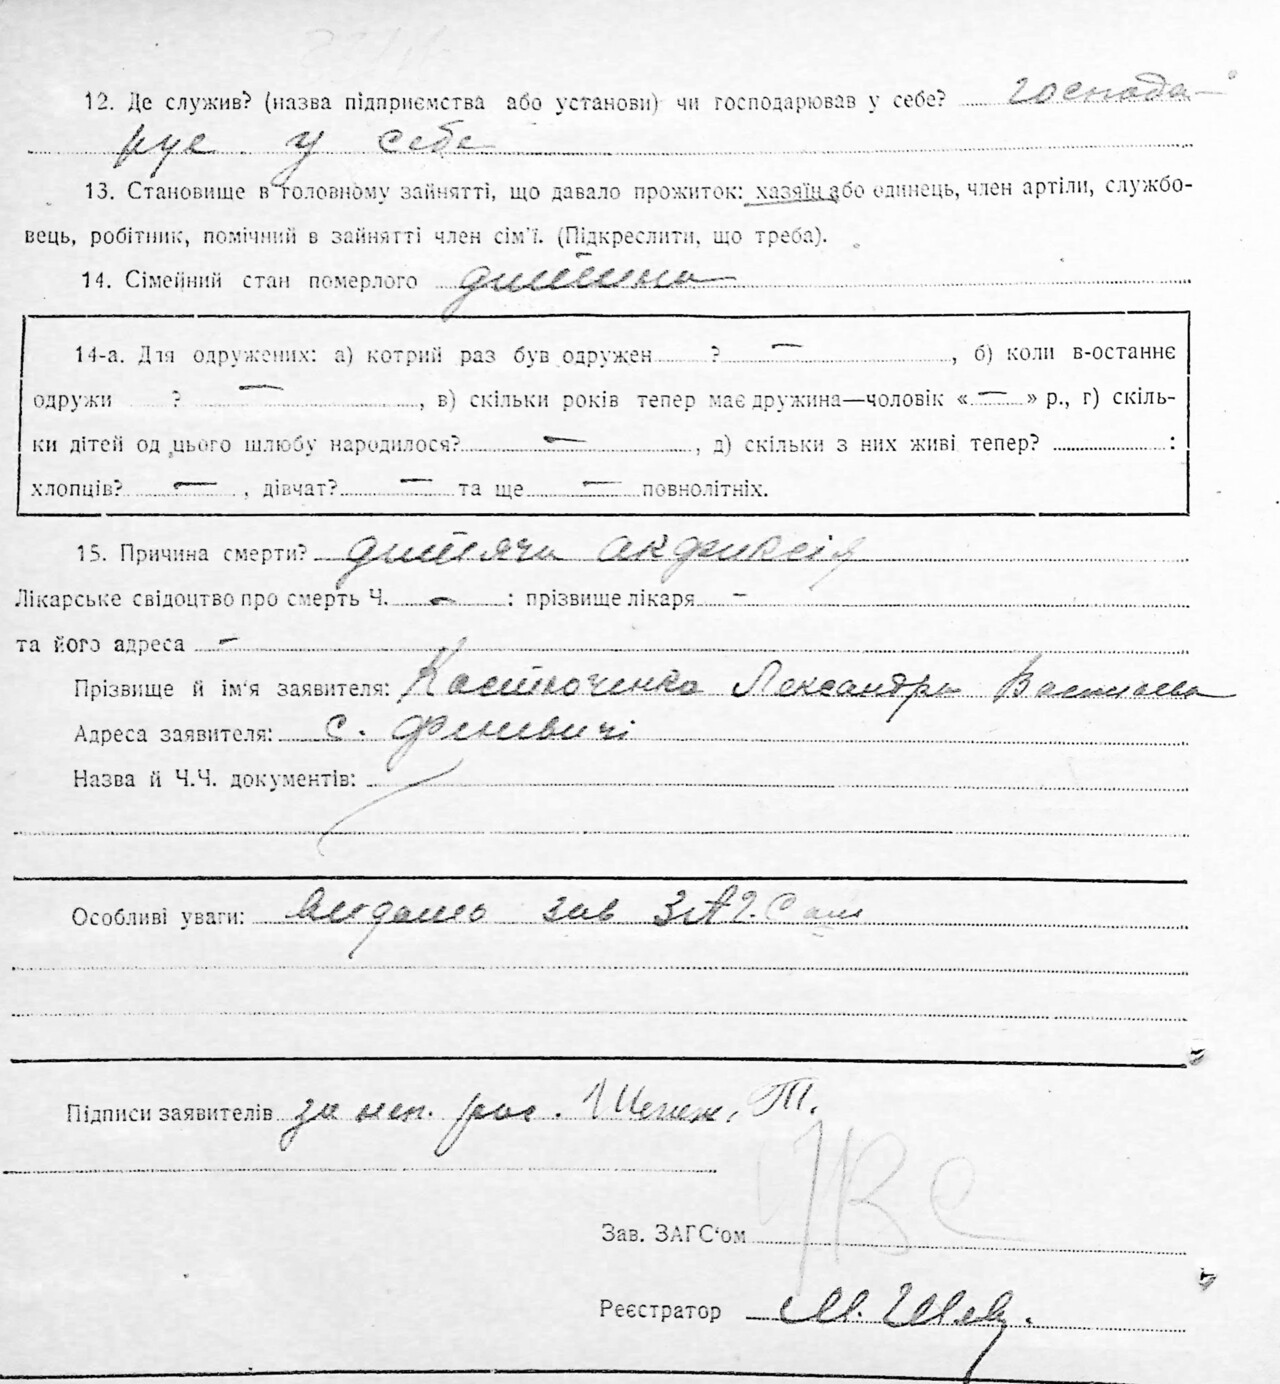 12. Де служив? (назва підприємства або установи) чи господарював у себе? господа-
рує у себе
13. Становище в головному зайнятті, що давало прожиток: хазяїн або одинець, член артіли, службо-
вець, робітник, помічний в зайнятті член сім'ї. (Підкреслити, що треба).
14. Сімейний стан померлого дитина
14-а. Для одружених: а) котрий раз був одружен ? —, б) коли в-останнє
одружи ? —, в) скільки років тепер має дружина—чоловік «—» р., г) скіль-
ки дітей од цього шлюбу народилося? —, д) скільки з них живі тепер? :
хлопців? —, дівчат? — та ще — повнолітніх.
15. Причина смерти? дитяча
Лікарське свідоцтво про смерть Ч. — : прізвище лікаря —
та його адреса —
Прізвище й ім'я заявителя: Костюченко Лександра
Адреса заявителя: с. Феневичі
Назва й Ч.Ч. документів:
Особливі уваги: зав
Підписи заявителів за неп. рос.
Зав. ЗАГС'ом
Реєстратор М.